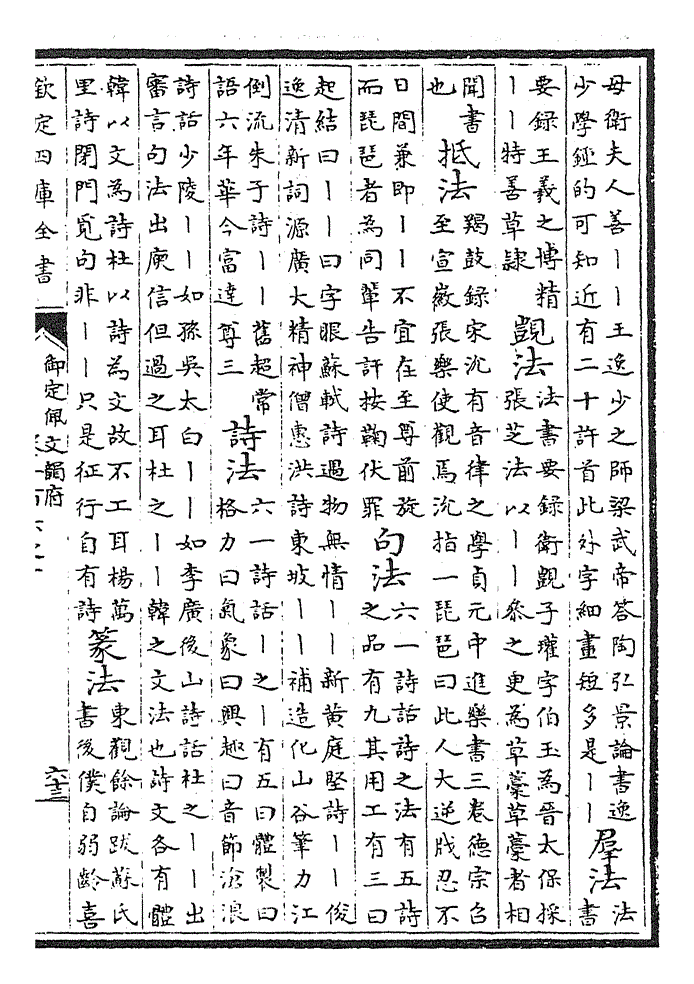 母衛夫人善丨丨王逸少之師梁武帝答陶弘景論書逸
少學鍾的可知近有二十許首此外字細畫短多是丨丨
羣法
法
書
要録王羲之博精
丨丨特善草隷
覬法
法書要録衛覬子瓘字伯玉為晉太保採
張芝法以丨丨叅之更為草藁草藁者相
聞書
也
抵法
羯鼓録宋沇有音律之學貞元中進樂書三卷德宗召
至宣徽張樂使觀焉沇指一琵琶曰此人大逆戕忍不
日間兼即丨丨不宜在至尊前旋
而琵琶者為同輩告訐按鞫伏罪
句法
六一詩話詩之法有五詩
之品有九其用工有三曰
起結曰丨丨曰字眼蘇軾詩遇物無情丨丨新黄庭堅詩丨丨俊
逸清新詞源廣大精神僧惠洪詩東坡丨丨補造化山谷筆力江
倒流朱子詩丨丨舊超常
語六年華今富逹尊三
詩法
六一詩話丨之丨有五曰體製曰
格力曰氣象曰興趣曰音節滄浪
詩話少陵丨丨如孫吳太白丨丨如李廣後山詩話杜之丨丨出
審言句法出庾信但過之耳杜之丨丨韓之文法也詩文各有體
韓以文為詩杜以詩為文故不工耳楊萬
里詩閉門覓句非丨丨只是征行自有詩
篆法
東觀餘論跋蘇氏
書後僕自弱齡喜
欽定四庫全書
御定佩文韻府
六十三